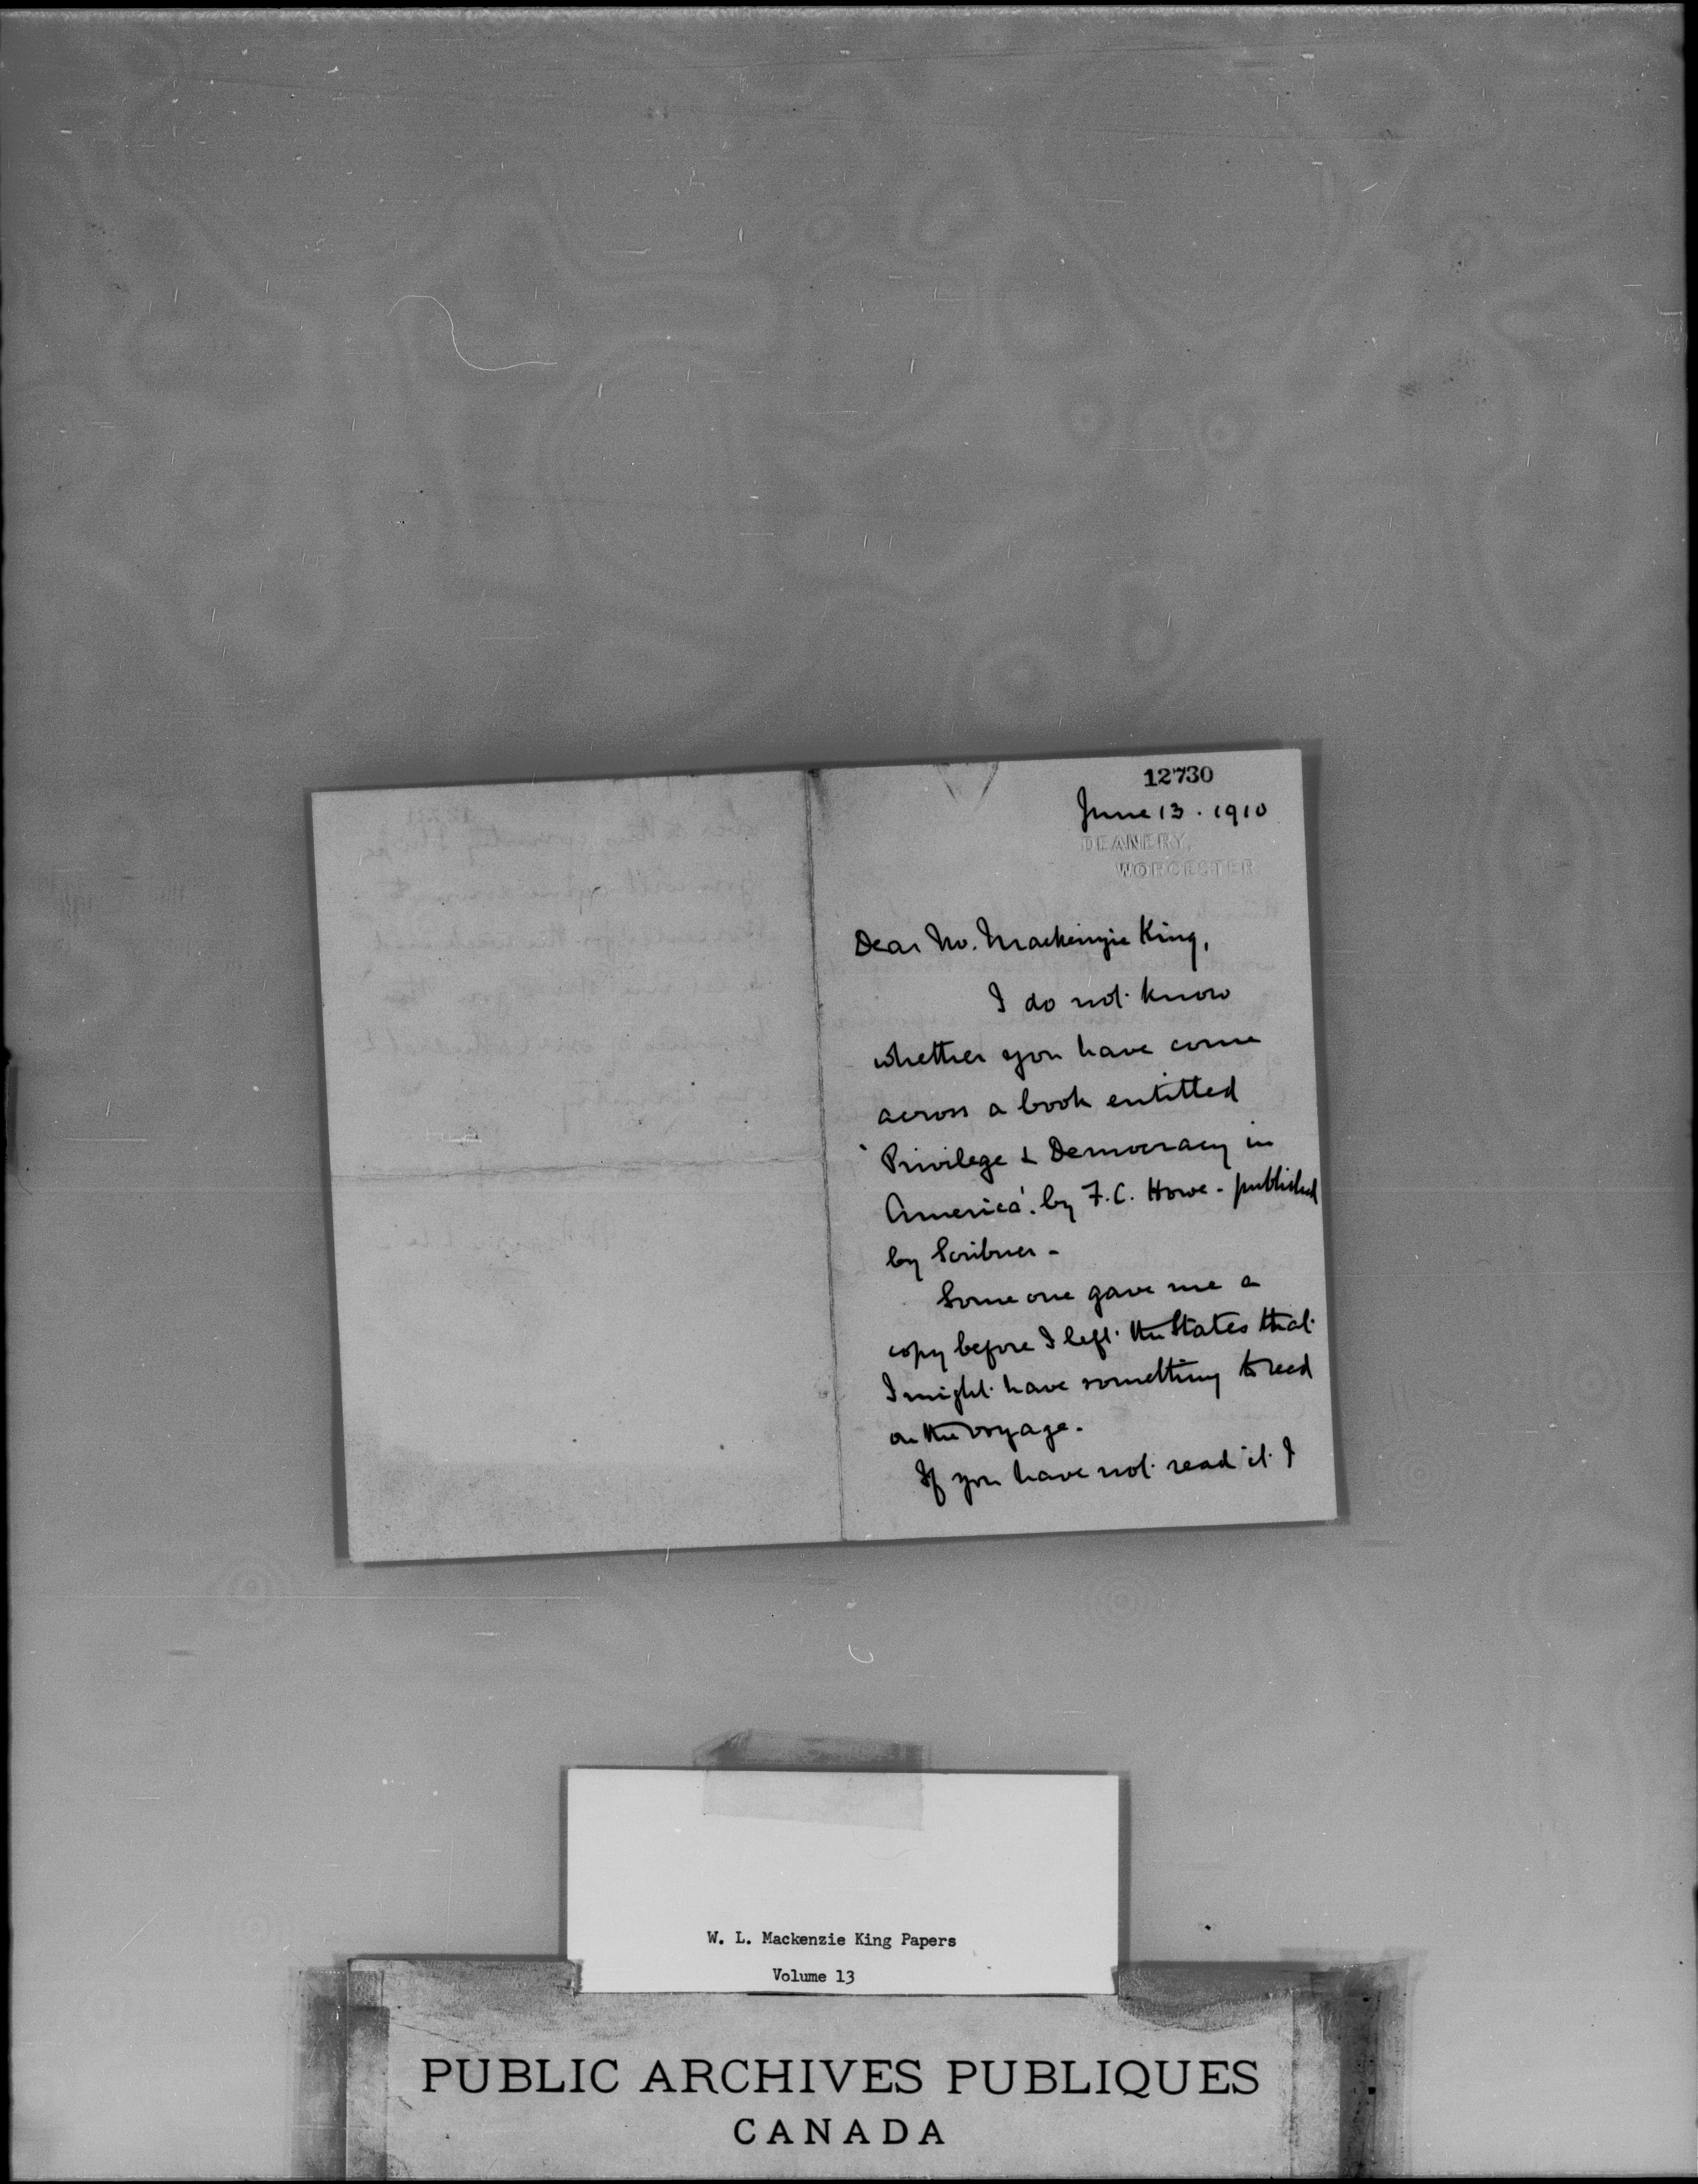 12730
June 13. 1910
DEANERY,
WORCESTER
Dear Mr. Mackenzie King,
I do not know
whether you have come
across a book entitled
'Privilege & Democracy in
America'. by F. C. Howe - published
by Scribner -
Some one gave me a
copy before I left the States that
I might have something to read
on the voyage.
If you have not read it I
W. L. Mackenzie King Papers
Volume 13
PUBLIC ARCHIVES PUBLIQUES
CANADA